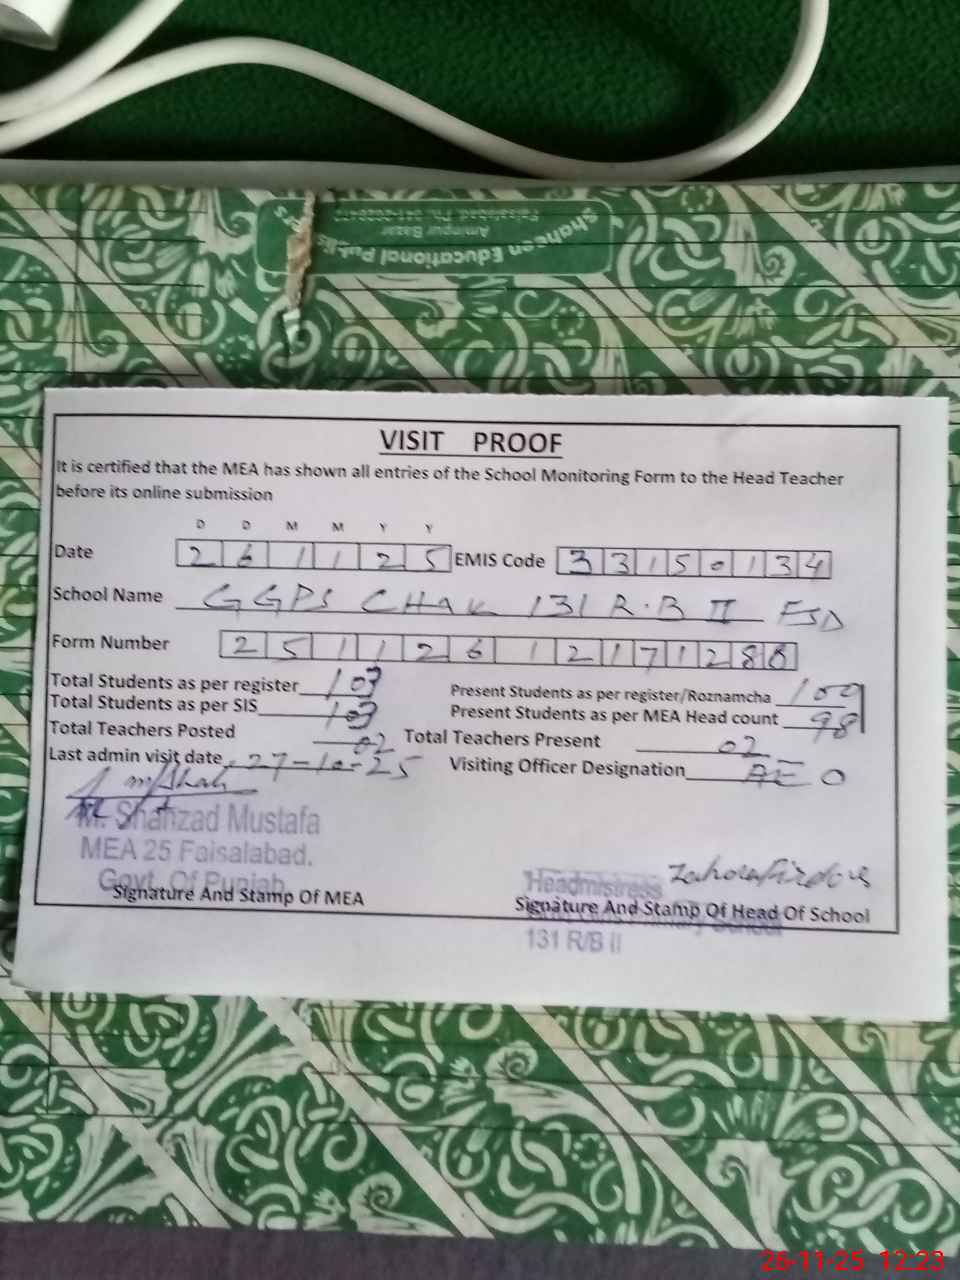 Shaheen Educational Publis
Aminpur Bazar
Faisalabad. Ph:
VISIT PROOF
It is certified that the MEA has shown all entries of the School Monitoring Form to the Head Teacher
before its online submission
D D M M Y Y
Date 2 6 1 1 2 5 EMIS Code 3 3 1 5 0 1 3 4
School Name GGPS CHAK 131 R.B II FSD
Form Number 2 5 1 1 2 6 1 2 1 7 1 2 8 8
Total Students as per register 103 Present Students as per register/Roznamcha
Total Students as per SIS 103 Present Students as per MEA Head count 98
Total Teachers Posted 02 Total Teachers Present 02
Last admin visit date 27-10-25 Visiting Officer Designation AEO
M. Shahzad Mustafa
MEA 25 Faisalabad.
Govt. Of Punjab
Signature And Stamp Of MEA
Headmistress
Signature And Stamp Of Head Of School
131 R/B II
26-11-25 12:23